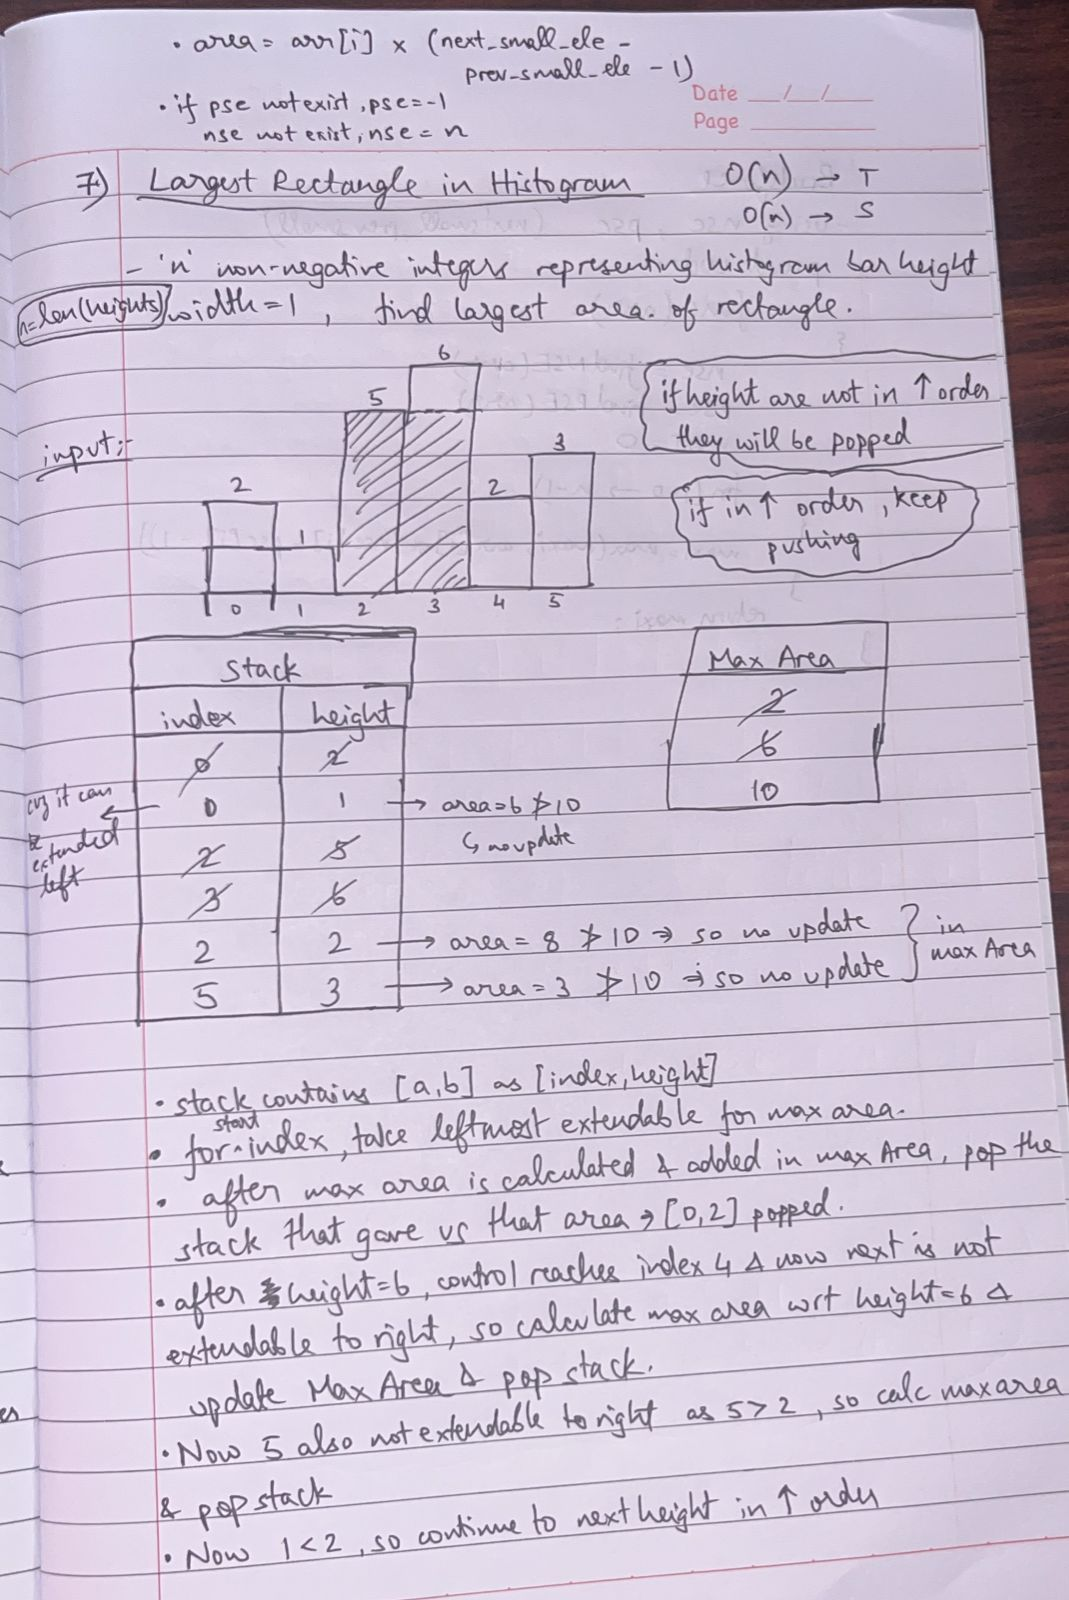 • area = arr[i] × (next_small_ele -
prev_small_ele - 1)
• if pse not exist, pse = -1
nse not exist, nse = n
Date __/__/__
Page ______
7) Largest Rectangle in Histogram
O(n) → T
O(n) → S
- 'n' non-negative integers representing histogram bar height
n = len(heights) width = 1, find largest area. of rectangle.
6
5
if height are not in ↑ order
they will be popped
input:-
3
2
2
if in ↑ order, keep
pushing
1
0 1 2 3 4 5
Stack
Max Area
index height
2
0 2
6
0 1 → area = 6 ≯ 10
10
↳ no update
cuz it can
be
extended
left
2 5
3 6
2 2 → area = 8 ≯ 10 ⇒ so no update
5 3 → area = 3 ≯ 10 ⇒ so no update
} in
max Area
• stack contains [a,b] as [index, height]
• for start index, take leftmost extendable for max area.
• after max area is calculated & added in max Area, pop the
stack that gave us that area → [0,2] popped.
• after height = 6, control reaches index 4 & now next is not
extendable to right, so calculate max area wrt height = 6 &
update Max Area & pop stack.
• Now 5 also not extendable to right as 5 > 2, so calc max area
& pop stack
• Now 1 < 2, so continue to next height in ↑ order